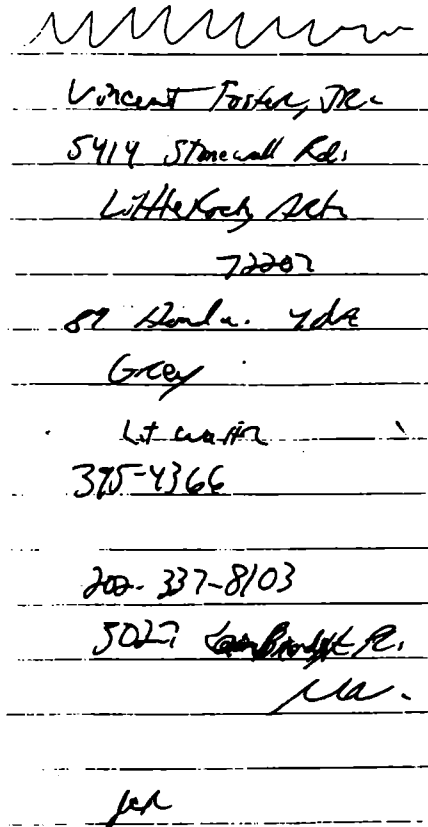 Vincent Foster, JR.
5414 Stonewall Rd.
Little Rock, Ark
72207
89 Honda. 4dr
Grey
Lt
395-4366
202-337-8103
3027